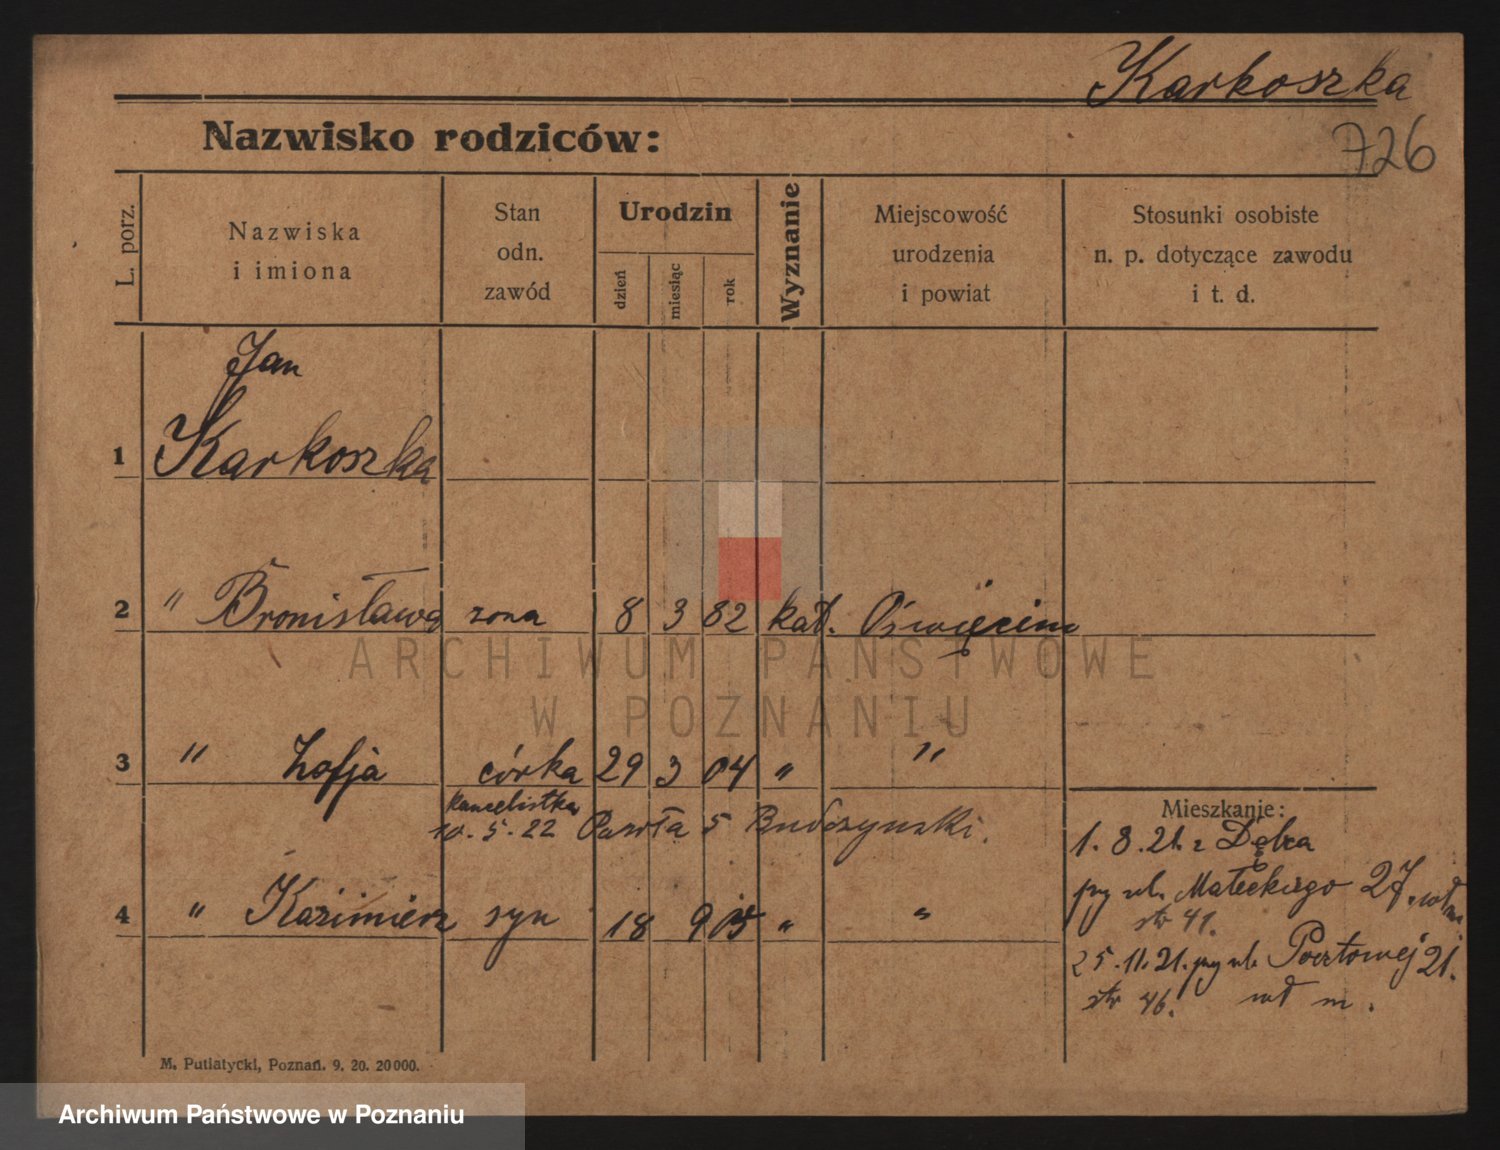 Karkoszka
Nazwisko rodziców:
726
L. porz.
Nazwiska
i imiona
Stan
odn.
zawód
Urodzin
dzień
miesiąc
rok
Wyznanie
Miejscowość
urodzenia
i powiat
Stosunki osobiste
n. p. dotyczące zawodu
i t. d.
Jan
1 Karkoszka
2 " Bronisława żona 8 3 82 kat. Oświęcim
ARCHIWUM PAŃSTWOWE
W POZNANIU
3 " Zofja córka 29 3 04 " "
kancelistka
10.5.22 Pawła 5 Budczynski.
Mieszkanie:
1.8.21. z Dębca
przy ul. Małeckiego 27. wł m.
str 41.
4 " Kazimierz syn 18 9 05 " "
25.11.21. przy ul. Pocztowej 21.
str 46. wł m.
M. Putiatycki, Poznań. 9. 20. 20000.
Archiwum Państwowe w Poznaniu